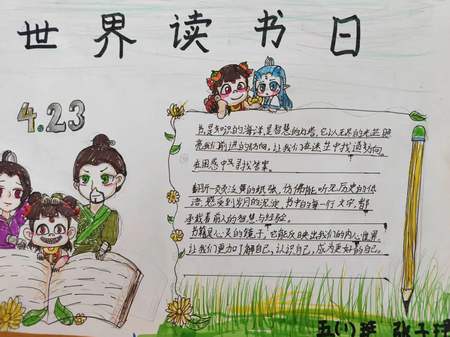 世界读书日
4.23
书是知识的海洋,是智慧的灯塔,它以无尽的光芒照
亮我们前进的方向,让我们在迷茫中找道方向,
在困惑中寻找答案。
翻开一页页泛黄的纸张,仿佛能听见历史的低
语,感受到岁月的沉淀,书中的每一行文字,都
承载着前人的智慧与经验。
书籍是心灵的镜子,它能反映出我们的内心世界,
让我们更加了解自己,认识自己,成为更好的自己。
五(1)班 张子